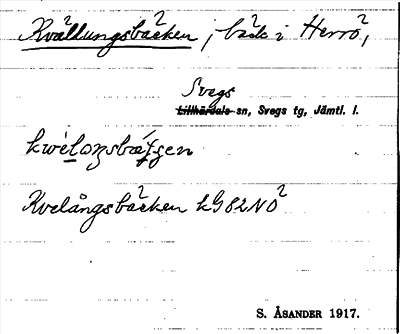 Kvällungsbäcken, bäck i Herrö,
Svegs
Lillhärdals sn, Svegs tg, Jämtl. l.
Kvelångsbäcken kG82NÖ
S. ÅSANDER 1917.